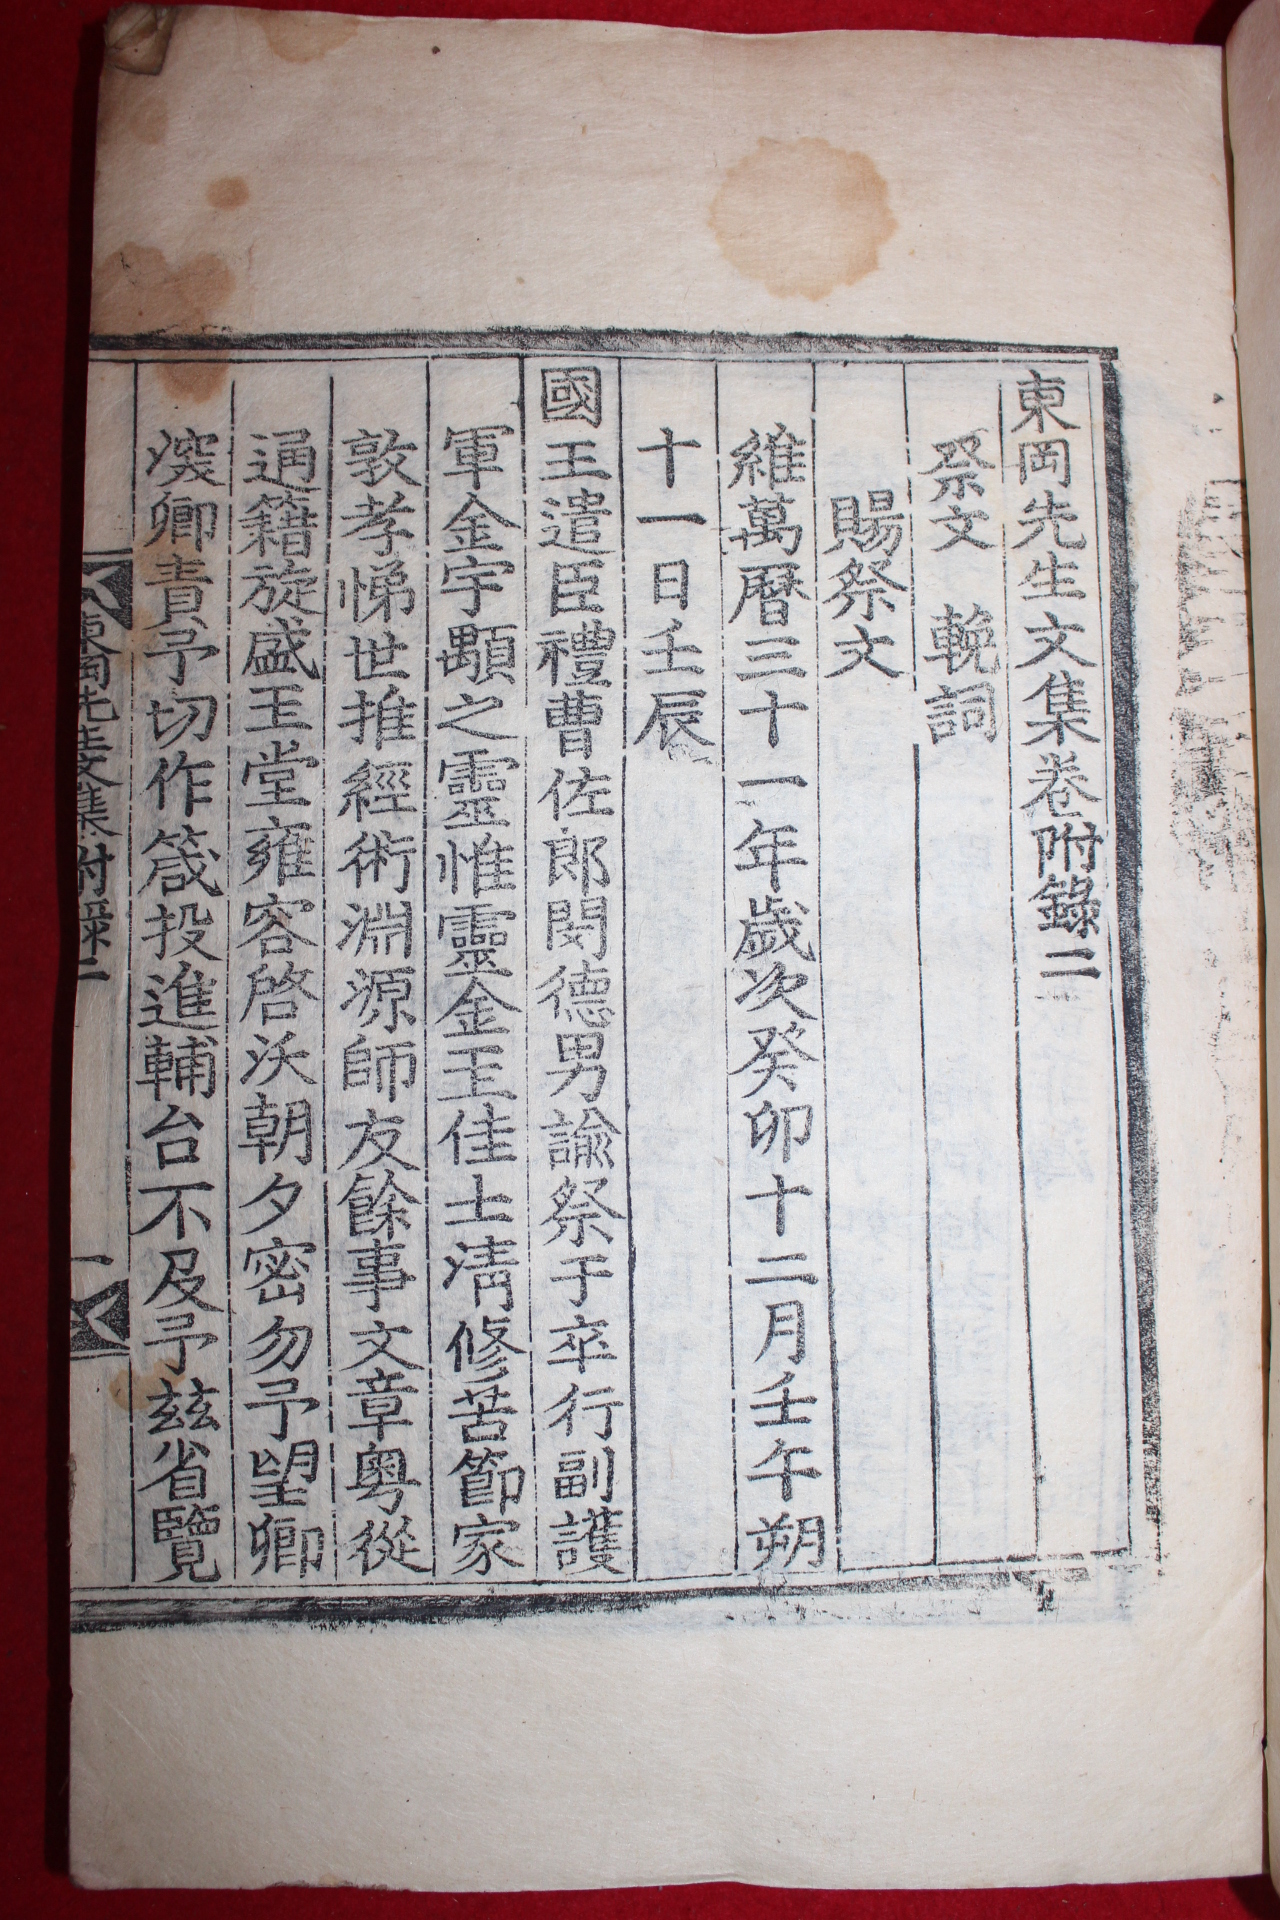 東岡先生文集卷附錄二
祭文 輓詞
賜祭文
維萬曆三十一年歲次癸卯十二月壬午朔
十一日壬辰
國王遣臣禮曹佐郎閔德男諭祭于卒行副護
軍金宇顒之靈惟靈金玉佳士淸修苦節家
敦孝悌世推經術淵源師友餘事文章粤從
通籍旋盛玉堂雍容啓沃朝夕密勿予望卿
深卿責予切作箴投進輔台不及予玆省覽
東岡先生文集附錄二
一